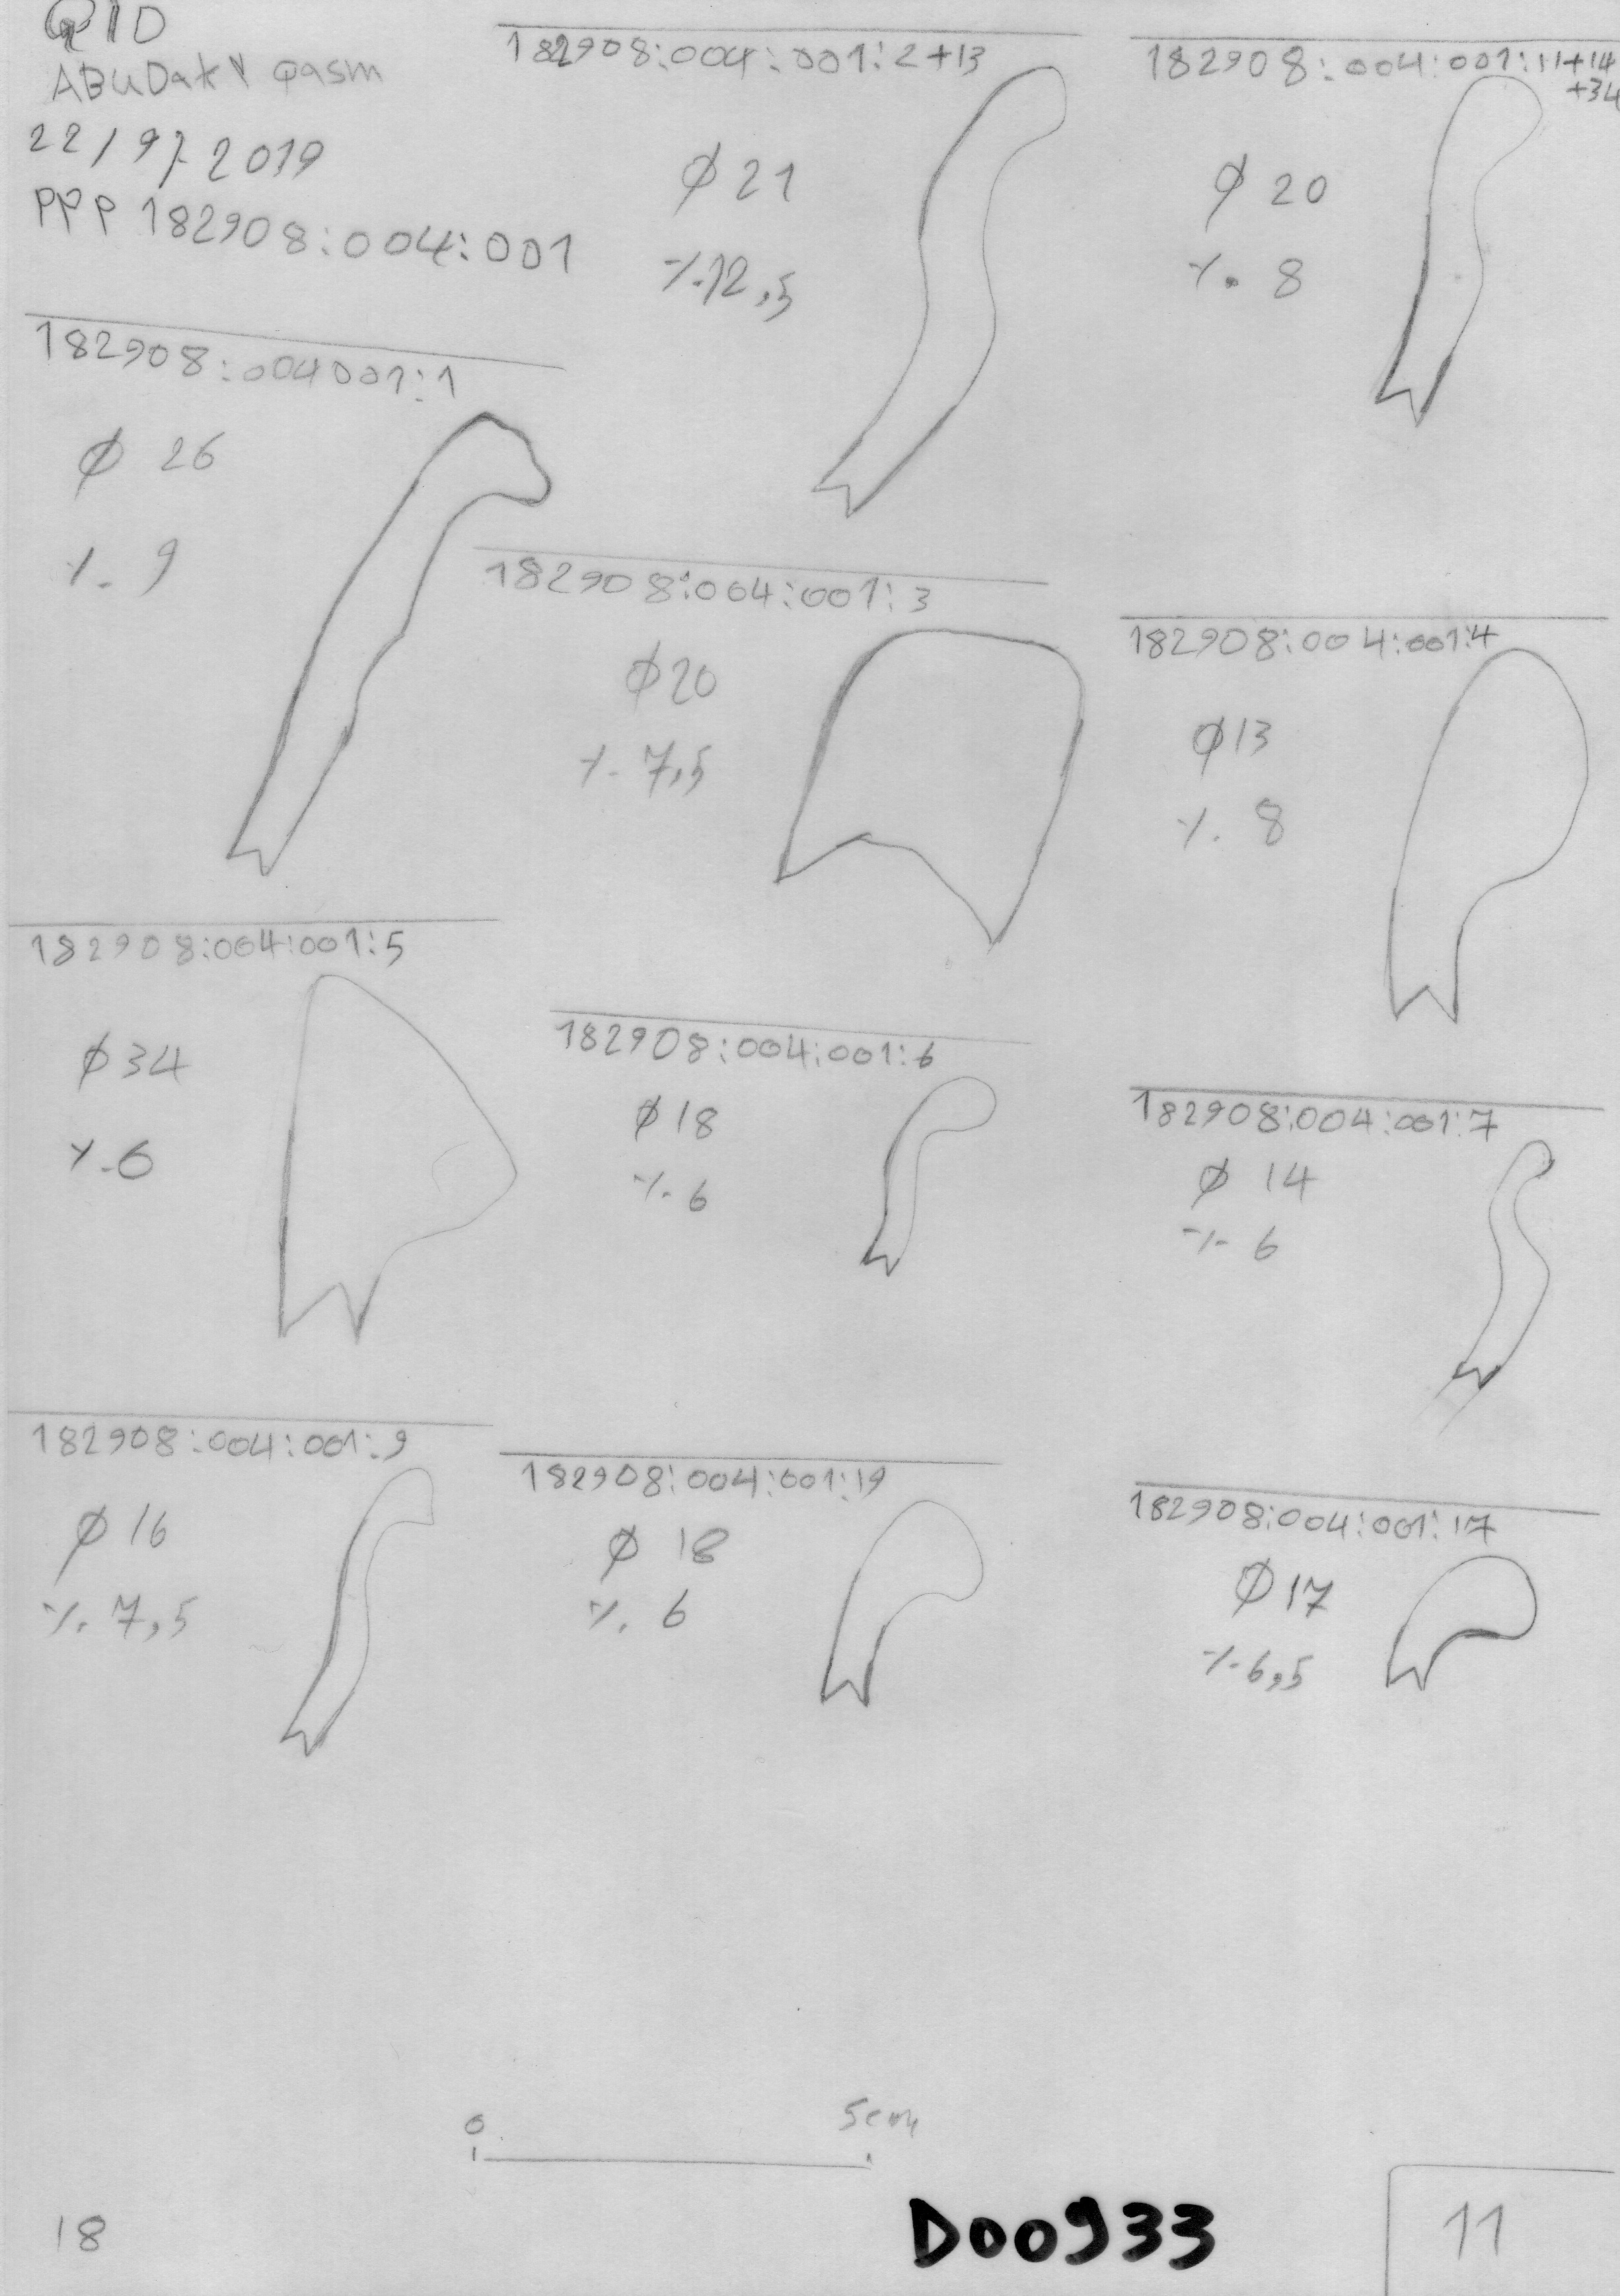 QID
ABUDAKY qasm
22/9/2019
PPP 182908:004:001
182908:004:001:2+13
Ø 21
%12,5
182908:004:001:11+14
+34
Ø 20
% 8
182908:004001:1
Ø 26
% 9
182908:004:001:3
Ø 20
% 7,5
182908:004:001:4
Ø 13
% 8
182908:004:001:5
Ø 34
% 6
182908:004:001:6
Ø 18
% 6
182908:004:001:7
Ø 14
% 6
182908:004:001:9
Ø 16
% 7,5
182908:004:001:19
Ø 18
% 6
182908:004:001:17
Ø 17
% 6,5
0 5cm
18
D00933
11